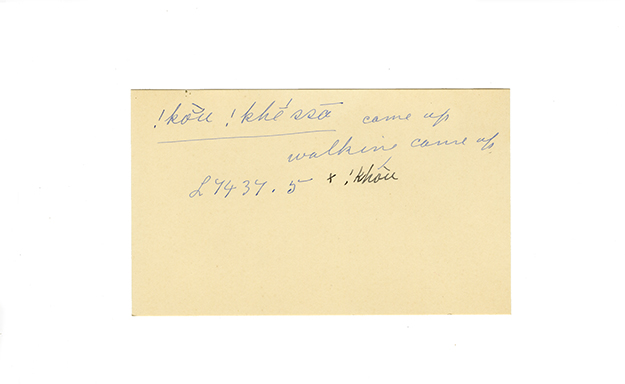 !kōu !khé ssā came up
walking came up
L 7437.5 + !khōu